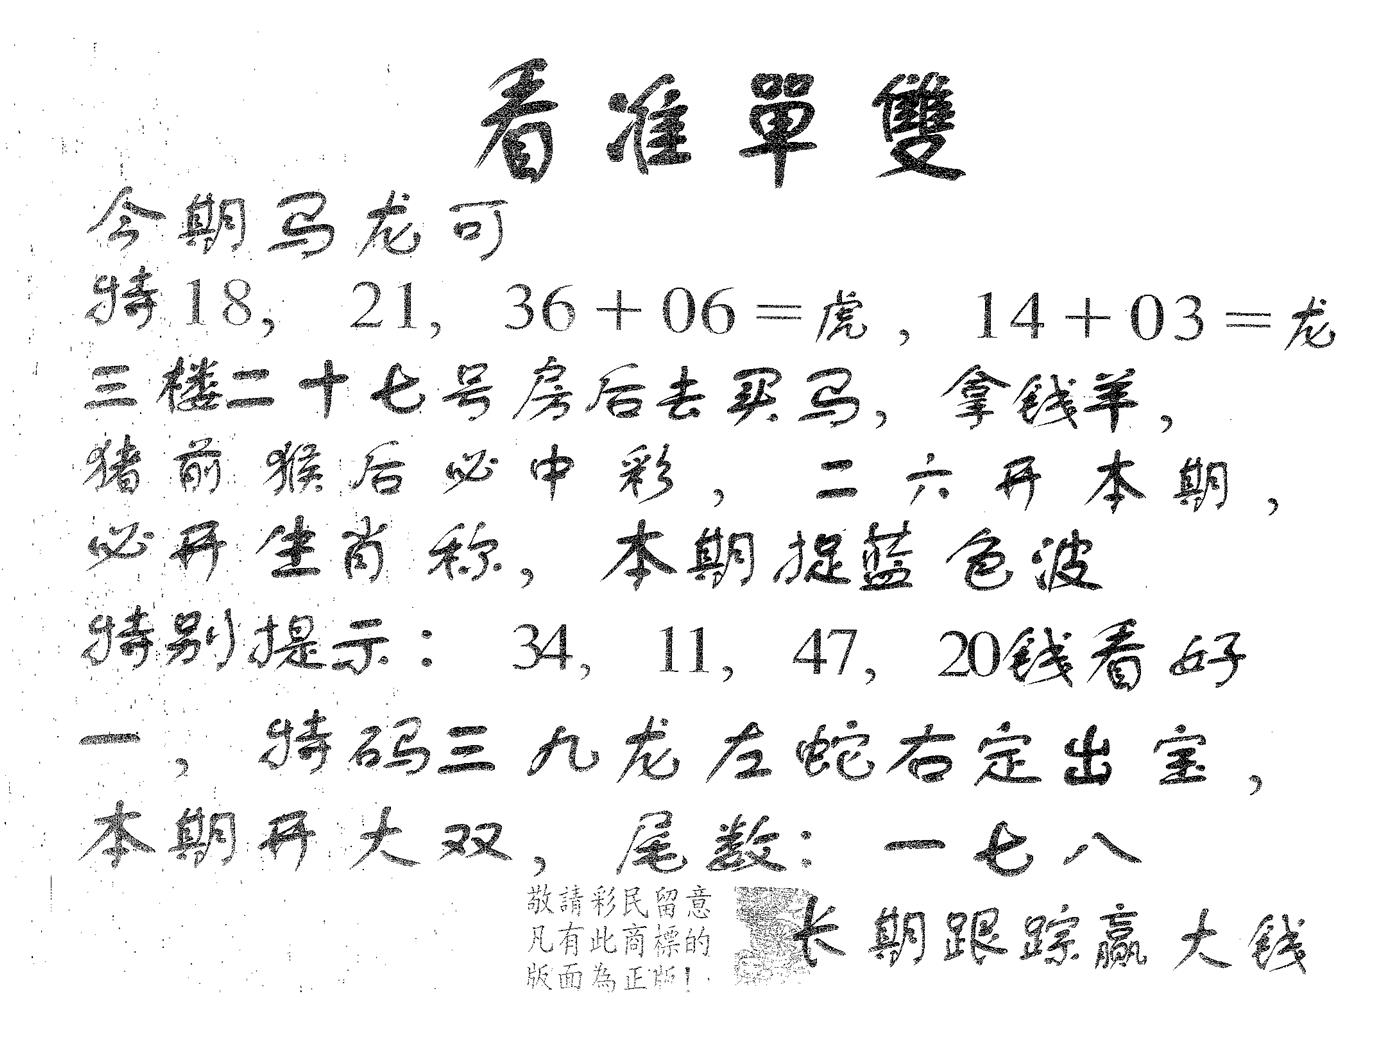 看准單雙
今期马龙可
特18， 21， 36＋06＝虎，14＋03＝龙
三楼二十七号房后去买马，拿钱羊，
猪前猴后必中彩，二六开本期，
必开生肖称，本期捉蓝色波
特别提示： 34， 11， 47， 20钱看好
一，特码三九龙左蛇右定出宝，
本期开大双，尾数：一七八
敬請彩民留意
凡有此商標的
版面為正版！
长期跟踪赢大钱